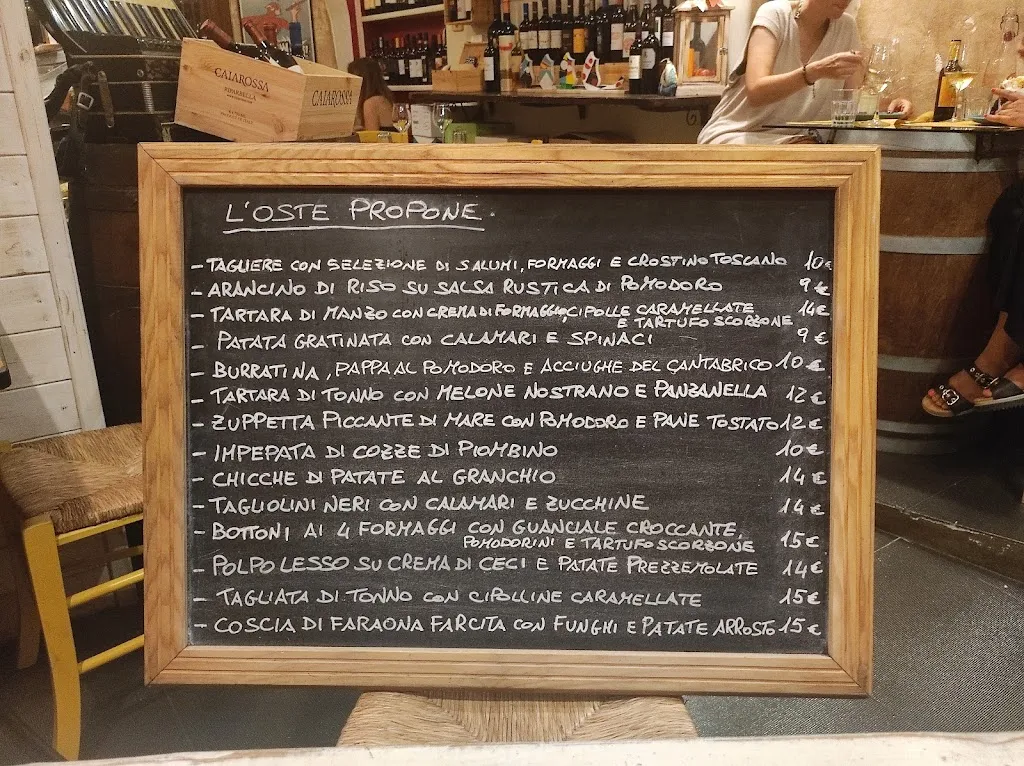 CAIAROSSA
RIPARBELLA
CAIAROSSA
L'OSTE PROPONE.
- TAGLIERE CON SELEZIONE DI SALUMI, FORMAGGI E CROSTINO TOSCANO 10€
- ARANCINO DI RISO SU SALSA RUSTICA DI POMODORO 9€
- TARTARA DI MANZO CON CREMA DI FORMAGGIO, CIPOLLE CARAMELLATE 14€
E TARTUFO SCORZONE
- PATATA GRATINATA CON CALAMARI E SPINACI 9€
- BURRATINA, PAPPA AL POMODORO E ACCIUGHE DEL CANTABRICO 10€
- TARTARA DI TONNO CON MELONE NOSTRANO E PANZANELLA 12€
- ZUPPETTA PICCANTE DI MARE CON POMODORO E PANE TOSTATO 12€
- IMPEPATA DI COZZE DI PIOMBINO 10€
- CHICCHE DI PATATE AL GRANCHIO 14€
- TAGLIOLINI NERI CON CALAMARI E ZUCCHINE 14€
- BOTTONI AI 4 FORMAGGI CON GUANCIALE CROCCANTE,
POMODORINI E TARTUFO SCORZONE 15€
- POLPO LESSO SU CREMA DI CECI E PATATE PREZZEMOLATE 14€
- TAGLIATA DI TONNO CON CIPOLLINE CARAMELLATE 15€
- COSCIA DI FARAONA FARCITA CON FUNGHI E PATATE ARROSTO 15€